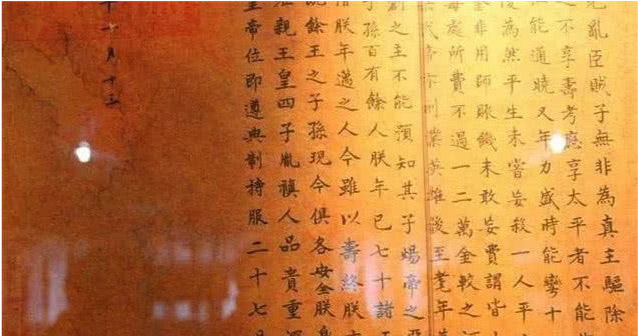 亂臣賊子無非為真主驅除
之不享壽考應享太平者不能
能通曉又年力盛時能彎十
為然平生未嘗妄殺一人平
金非用師賑饑未敢妄費謂皆
每處所費不過一二萬金較之河
武帝亦創業英雄後至耄年
創之主不能預知其子煬帝之惡
子孫百有餘人朕年已七十諸王
惜朕年邁之人今雖以壽終朕
饒餘王之子孫現今俱各安全朕身
雍親王皇四子胤禛人品貴重深
皇帝位即遵典制持服二十七日
十一月十三